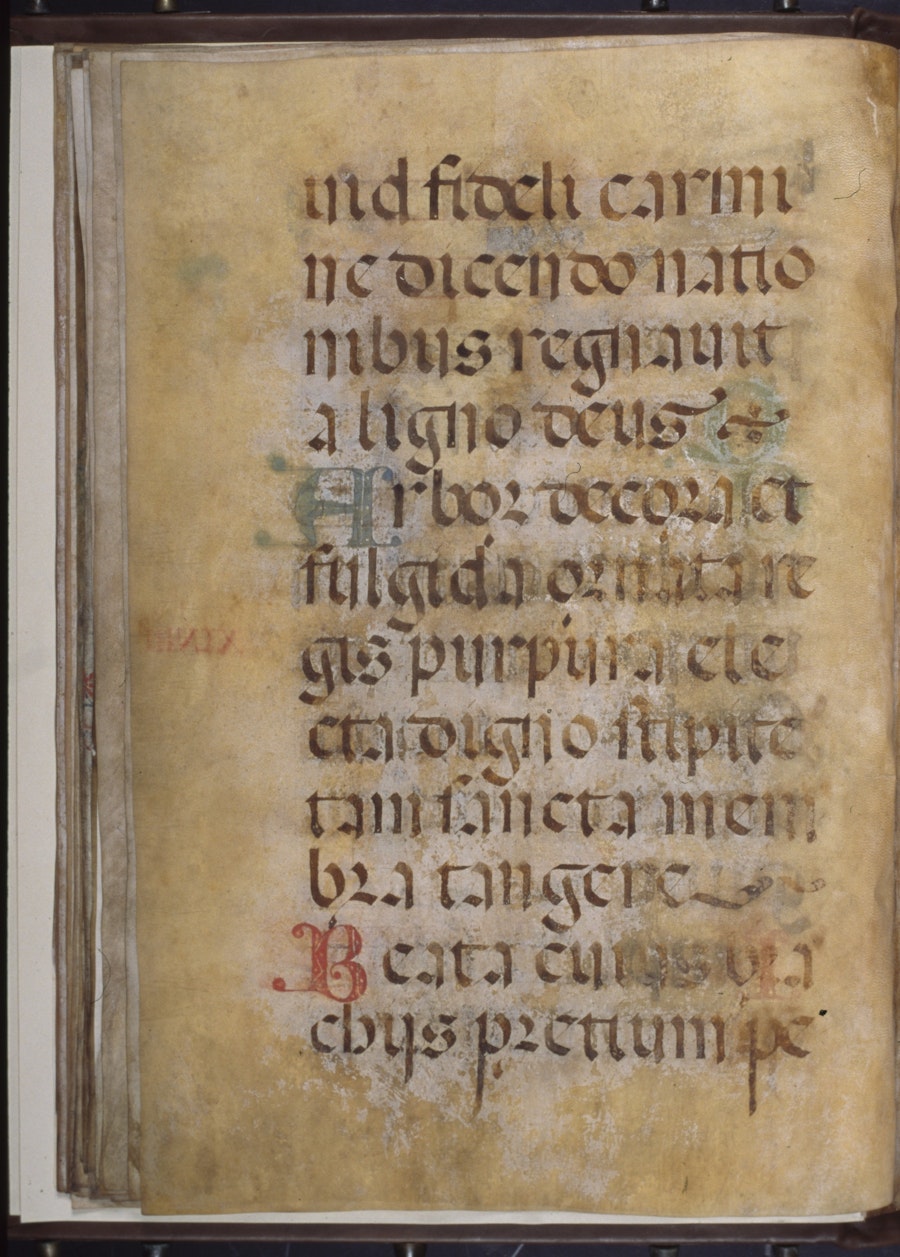 uid fideli carmi
ne dicendo natio
nibus regnauit
a ligno deus
Arbor decora et
fulgida ornata re
gis purpura ele
cta digno stipite
tam sancta mem
bra tangere
Beata cuius bra
chijs pretium pe